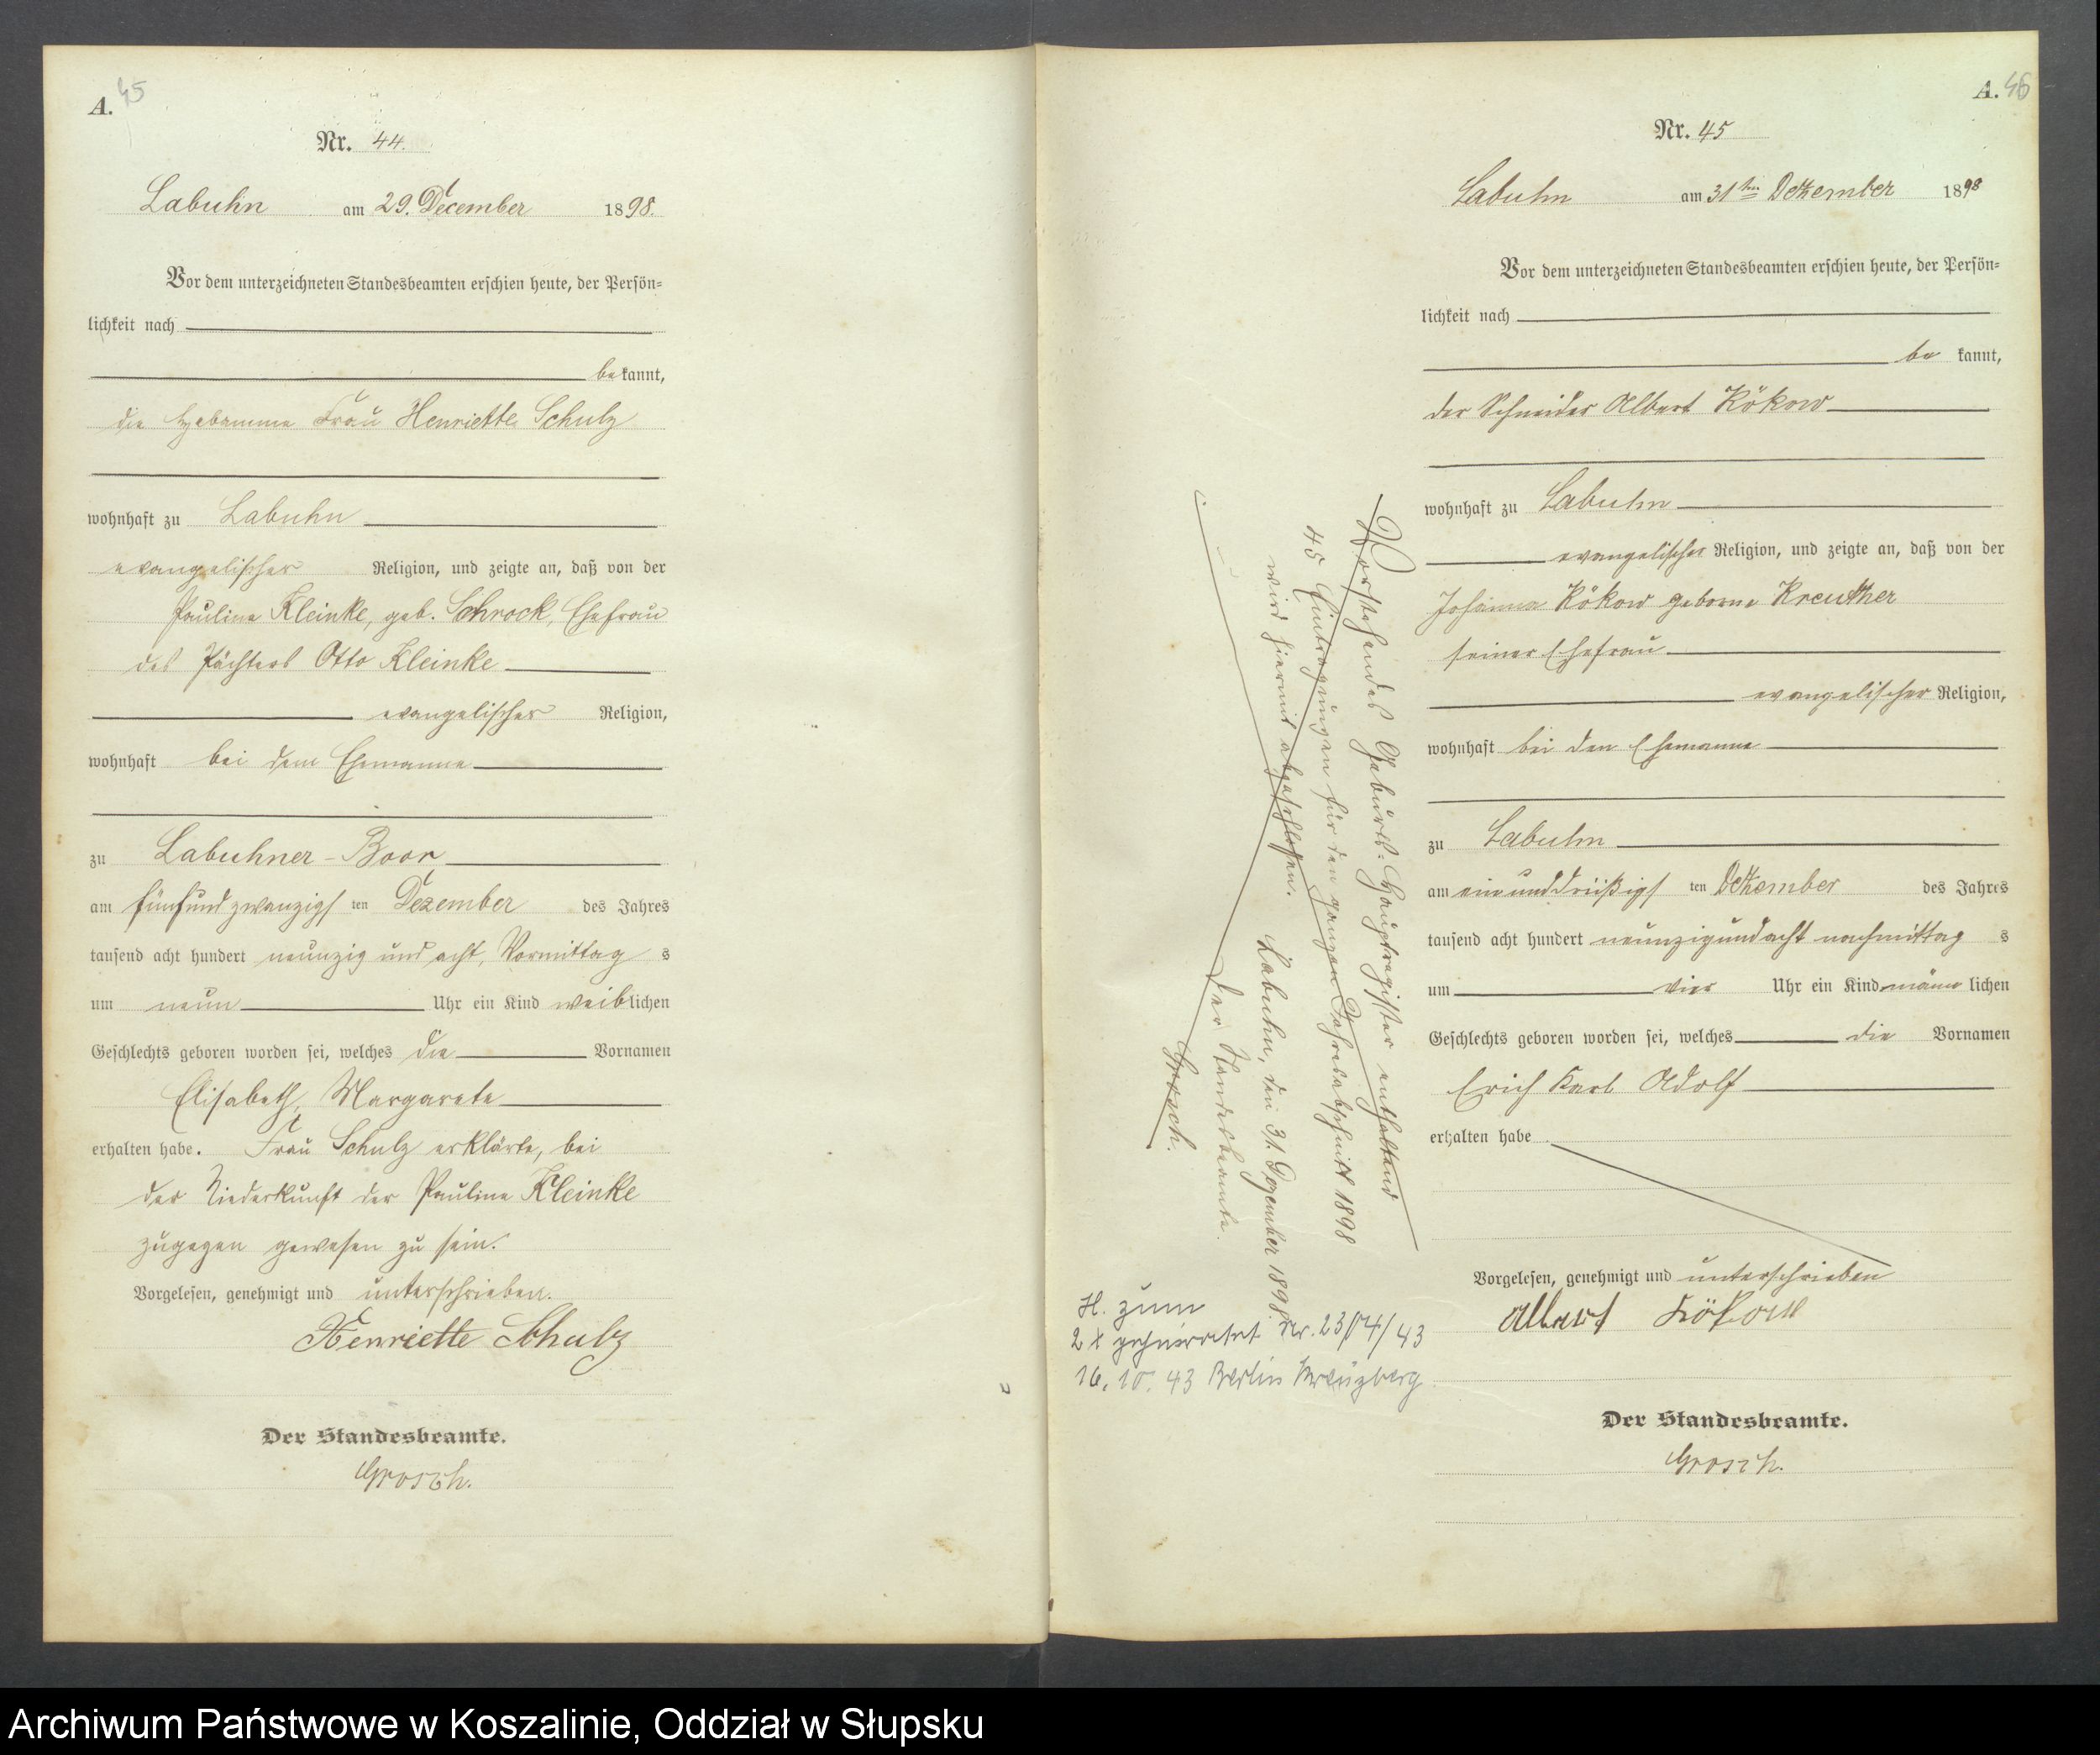 A. 45
Nr. 44.
Labuhn am 29. December 1898.
Vor dem unterzeichneten Standesbeamten erschien heute, der Persön=
lichkeit nach
bekannt,
die Hebamme Frau Henriette Schulz
wohnhaft zu Labuhn
evangelischer Religion, und zeigte an, daß von der
Pauline Kleinke, geb. Schrock, Ehefrau
des Pächters Otto Kleinke
evangelischer Religion,
wohnhaft bei dem Ehemanne
zu Labuhner-Boor
am fünfundzwanzigsten Dezember des Jahres
tausend acht hundert neunzig und acht, Vormittags
um neun Uhr ein Kind weiblichen
Geschlechts geboren worden sei, welches die Vornamen
Elisabeth, Margarete
erhalten habe. Frau Schulz erklärte, bei
der Niederkunft der Pauline Kleinke
zugegen gewesen zu sein.
Vorgelesen, genehmigt und unterschrieben.
Henriette Schulz
Der Standesbeamte.
Grosch.
A. 46
Nr. 45
Labuhn am 31ten Dezember 1898
Vor dem unterzeichneten Standesbeamten erschien heute, der Persön=
lichkeit nach
bekannt,
der Schneider Albert Kökow
wohnhaft zu Labuhn
evangelischer Religion, und zeigte an, daß von der
Johanna Kökow geborne Kreuther
seiner Ehefrau
evangelischer Religion,
wohnhaft bei den Ehemanne
zu Labuhn
am einunddreißigsten Dezember des Jahres
tausend acht hundert neunzigundacht nachmittags
um vier Uhr ein Kind männlichen
Geschlechts geboren worden sei, welches die Vornamen
Erich Karl Adolf
erhalten habe
Vorgelesen, genehmigt und unterschrieben
Albert Kökow
Der Standesbeamte.
Grosch.
Vorstehendes Geburts-Hauptregister enthaltend
45 Eintragungen für den ganzen Jahresabschnitt 1898
wird hiermit abgeschlossen.
Labuhn, den 31. Dezember 1898.
Der Standesbeamte.
Grosch.
H. zum
2 x geheiratet Nr. 2304/43
16. 10. 43 Berlin Kreuzberg
Archiwum Państwowe w Koszalinie, Oddział w Słupsku